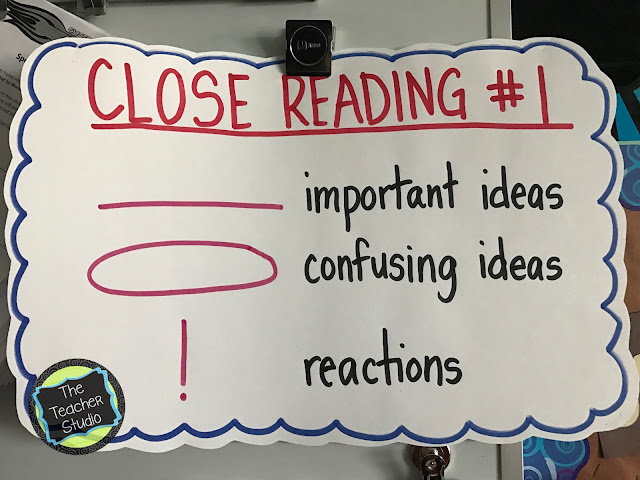 CLOSE READING #1
important ideas
confusing ideas
! reactions
The
Teacher
Studio